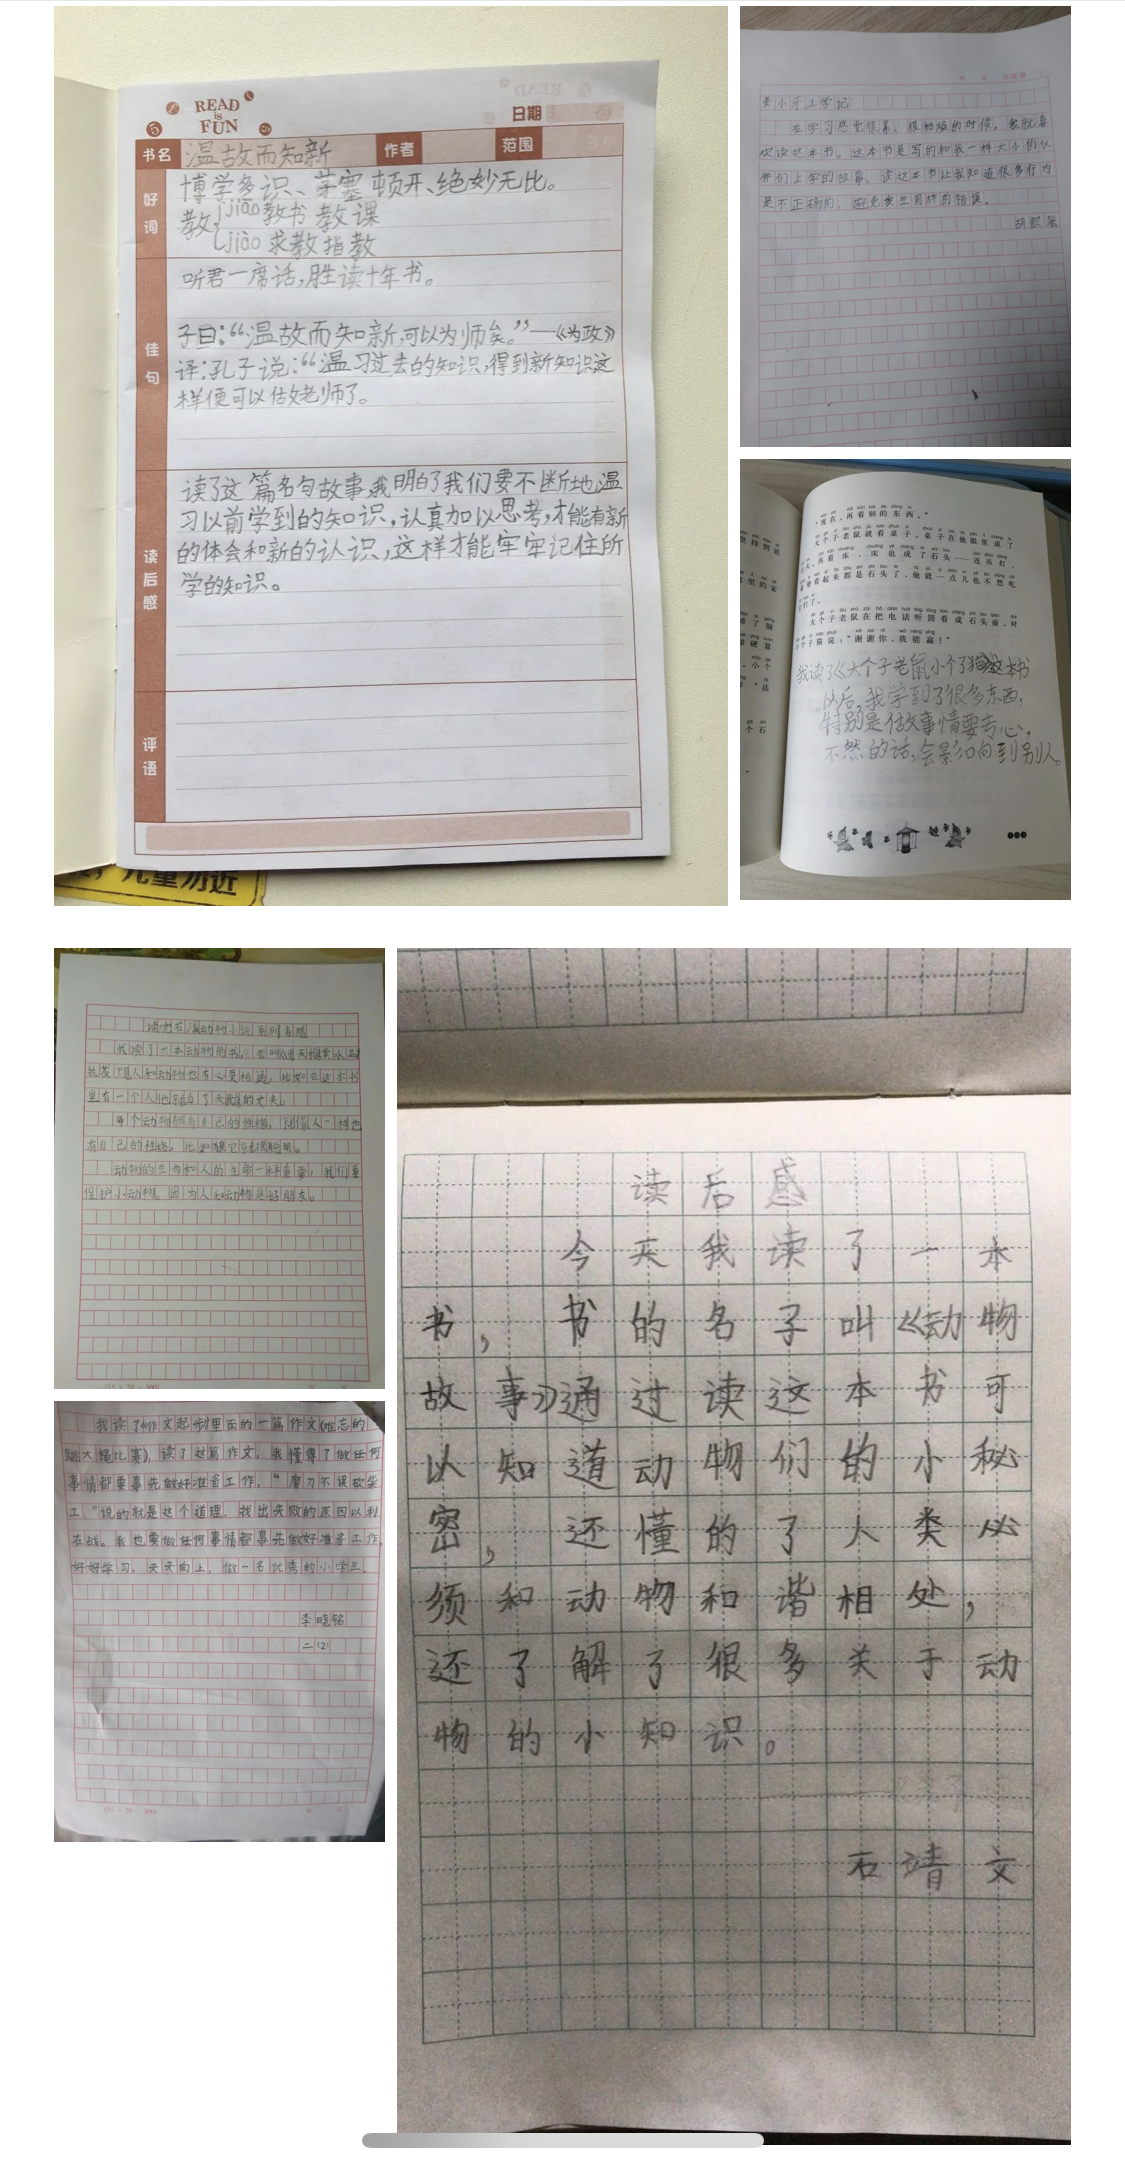 READ
is
FUN
日期
书名 温故而知新 作者 范围
好词
博学多识、茅塞顿开、绝妙无比。
教 jiāo 教书 教课
jiào 求教 指教
佳句
听君一席话,胜读十年书。
子曰:“温故而知新,可以为师矣。”—《为政》
译:孔子说:“温习过去的知识,得到新知识这
样便可以做老师了。
读后感
读了这篇名句故事,我明白了我们要不断地温
习以前学到的知识,认真加以思考,才能有新
的体会和新的认识,这样才能牢牢记住所
学的知识。
评语
儿童勿近
小开上学记
在学习感觉很累、很枯燥的时候,我就喜
欢读这本书。这本书是写的和我一样大小的伙
伴们上学的故事。读这本书让我知道很多行为
是不正确的,避免发生同样的错误。
坚持到底
“现在,再看别的东西。”
大个子老鼠就看桌子,桌子在他眼里成了
石头,再看床,床也成了石头……连吊灯、
看起来都是石头了,他就一点儿也不想吃
它们了。
大个子老鼠在把电话听筒看成石头前,对
小个子猫说:“谢谢你,我能赢!”
我读了《大个子老鼠小个子猫》这本书
以后,我学到了很多东西,
特别是做事情要专心,
不然的话,会影响到别人。
我读了一本动物的书,
我发现人和动物也有心灵相通,比如在这本书
里有一个人他
每个动物都有自己的性格,就像人一样也
有自己的性格。
动物的生命和人的生命一样重要,我们要
保护小动物。因为人和动物是好朋友。
(15×20=300)
我读了《作文起步》里面的一篇作文《难忘的
跳大绳比赛》,读了这篇作文,我懂得了做任何
事情都要事先做好准备工作,“磨刀不误砍柴
工”说的就是这个道理,找出失败的原因以利
在战。我也要做任何事情都事先做好准备工作,
好好学习,天天向上,做一名优秀的小学生。
李晓铭
二(2)
(15×20=300)
读后感
今天我读了一本
书,书的名子叫《动物
故事》通过读这本书可
以知道动物们的小秘
密,还懂的了人类必
须和动物和谐相处,
还了解了很多关于动
物的小知识。
石靖文